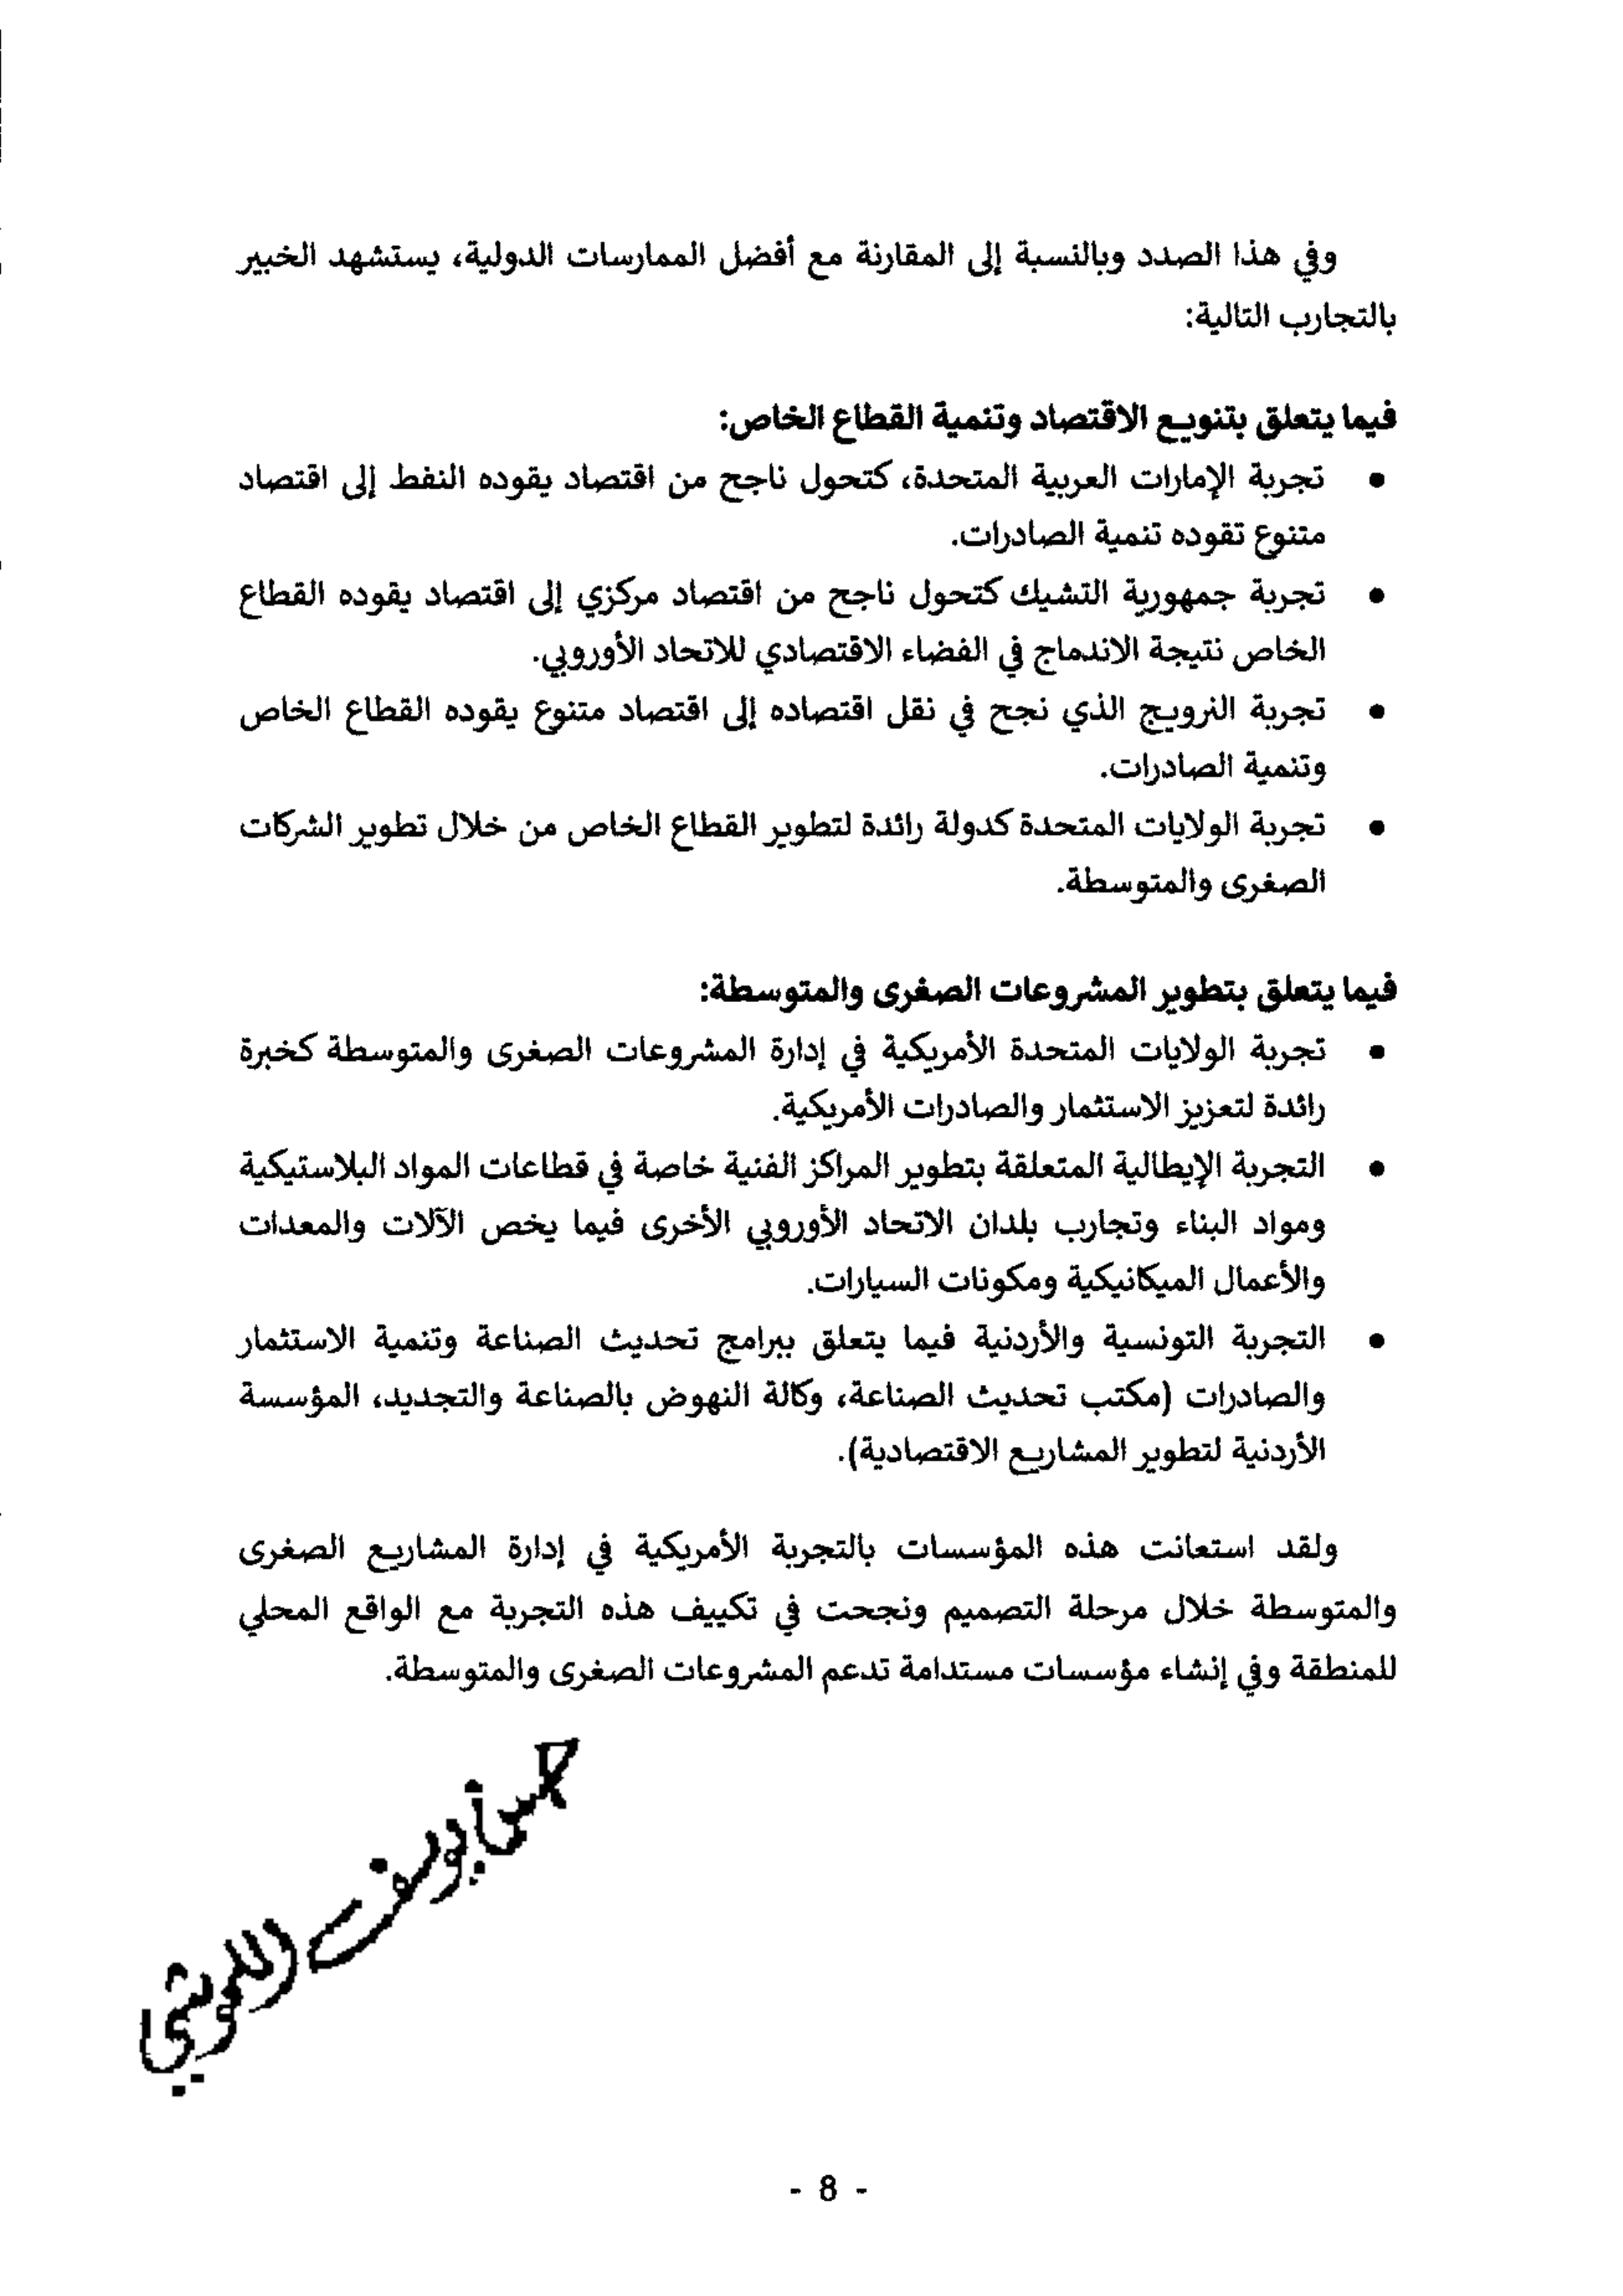 وفي هذا الصدد وبالنسبة إلى المقارنة مع أفضل الممارسات الدولية، يستشهد الخبير
بالتجارب التالية:
فيما يتعلق بتنويع الاقتصاد وتنمية القطاع الخاص:
• تجربة الإمارات العربية المتحدة، كتحول ناجح من اقتصاد يقوده النفط إلى اقتصاد
متنوع تقوده تنمية الصادرات.
• تجربة جمهورية التشيك كتحول ناجح من اقتصاد مركزي إلى اقتصاد يقوده القطاع
الخاص نتيجة الاندماج في الفضاء الاقتصادي للاتحاد الأوروبي.
• تجربة النرويج الذي نجح في نقل اقتصاده إلى اقتصاد متنوع يقوده القطاع الخاص
وتنمية الصادرات.
• تجربة الولايات المتحدة كدولة رائدة لتطوير القطاع الخاص من خلال تطوير الشركات
الصغرى والمتوسطة.
فيما يتعلق بتطوير المشروعات الصغرى والمتوسطة:
• تجربة الولايات المتحدة الأمريكية في إدارة المشروعات الصغرى والمتوسطة كخبرة
رائدة لتعزيز الاستثمار والصادرات الأمريكية.
• التجربة الإيطالية المتعلقة بتطوير المراكز الفنية خاصة في قطاعات المواد البلاستيكية
ومواد البناء وتجارب بلدان الاتحاد الأوروبي الأخرى فيما يخص الآلات والمعدات
والأعمال الميكانيكية ومكونات السيارات.
• التجربة التونسية والأردنية فيما يتعلق ببرامج تحديث الصناعة وتنمية الاستثمار
والصادرات (مكتب تحديث الصناعة، وكالة النهوض بالصناعة والتجديد، المؤسسة
الأردنية لتطوير المشاريع الاقتصادية).
ولقد استعانت هذه المؤسسات بالتجربة الأمريكية في إدارة المشاريع الصغرى
والمتوسطة خلال مرحلة التصميم ونجحت في تكييف هذه التجربة مع الواقع المحلي
للمنطقة وفي إنشاء مؤسسات مستدامة تدعم المشروعات الصغرى والمتوسطة.
- 8 -